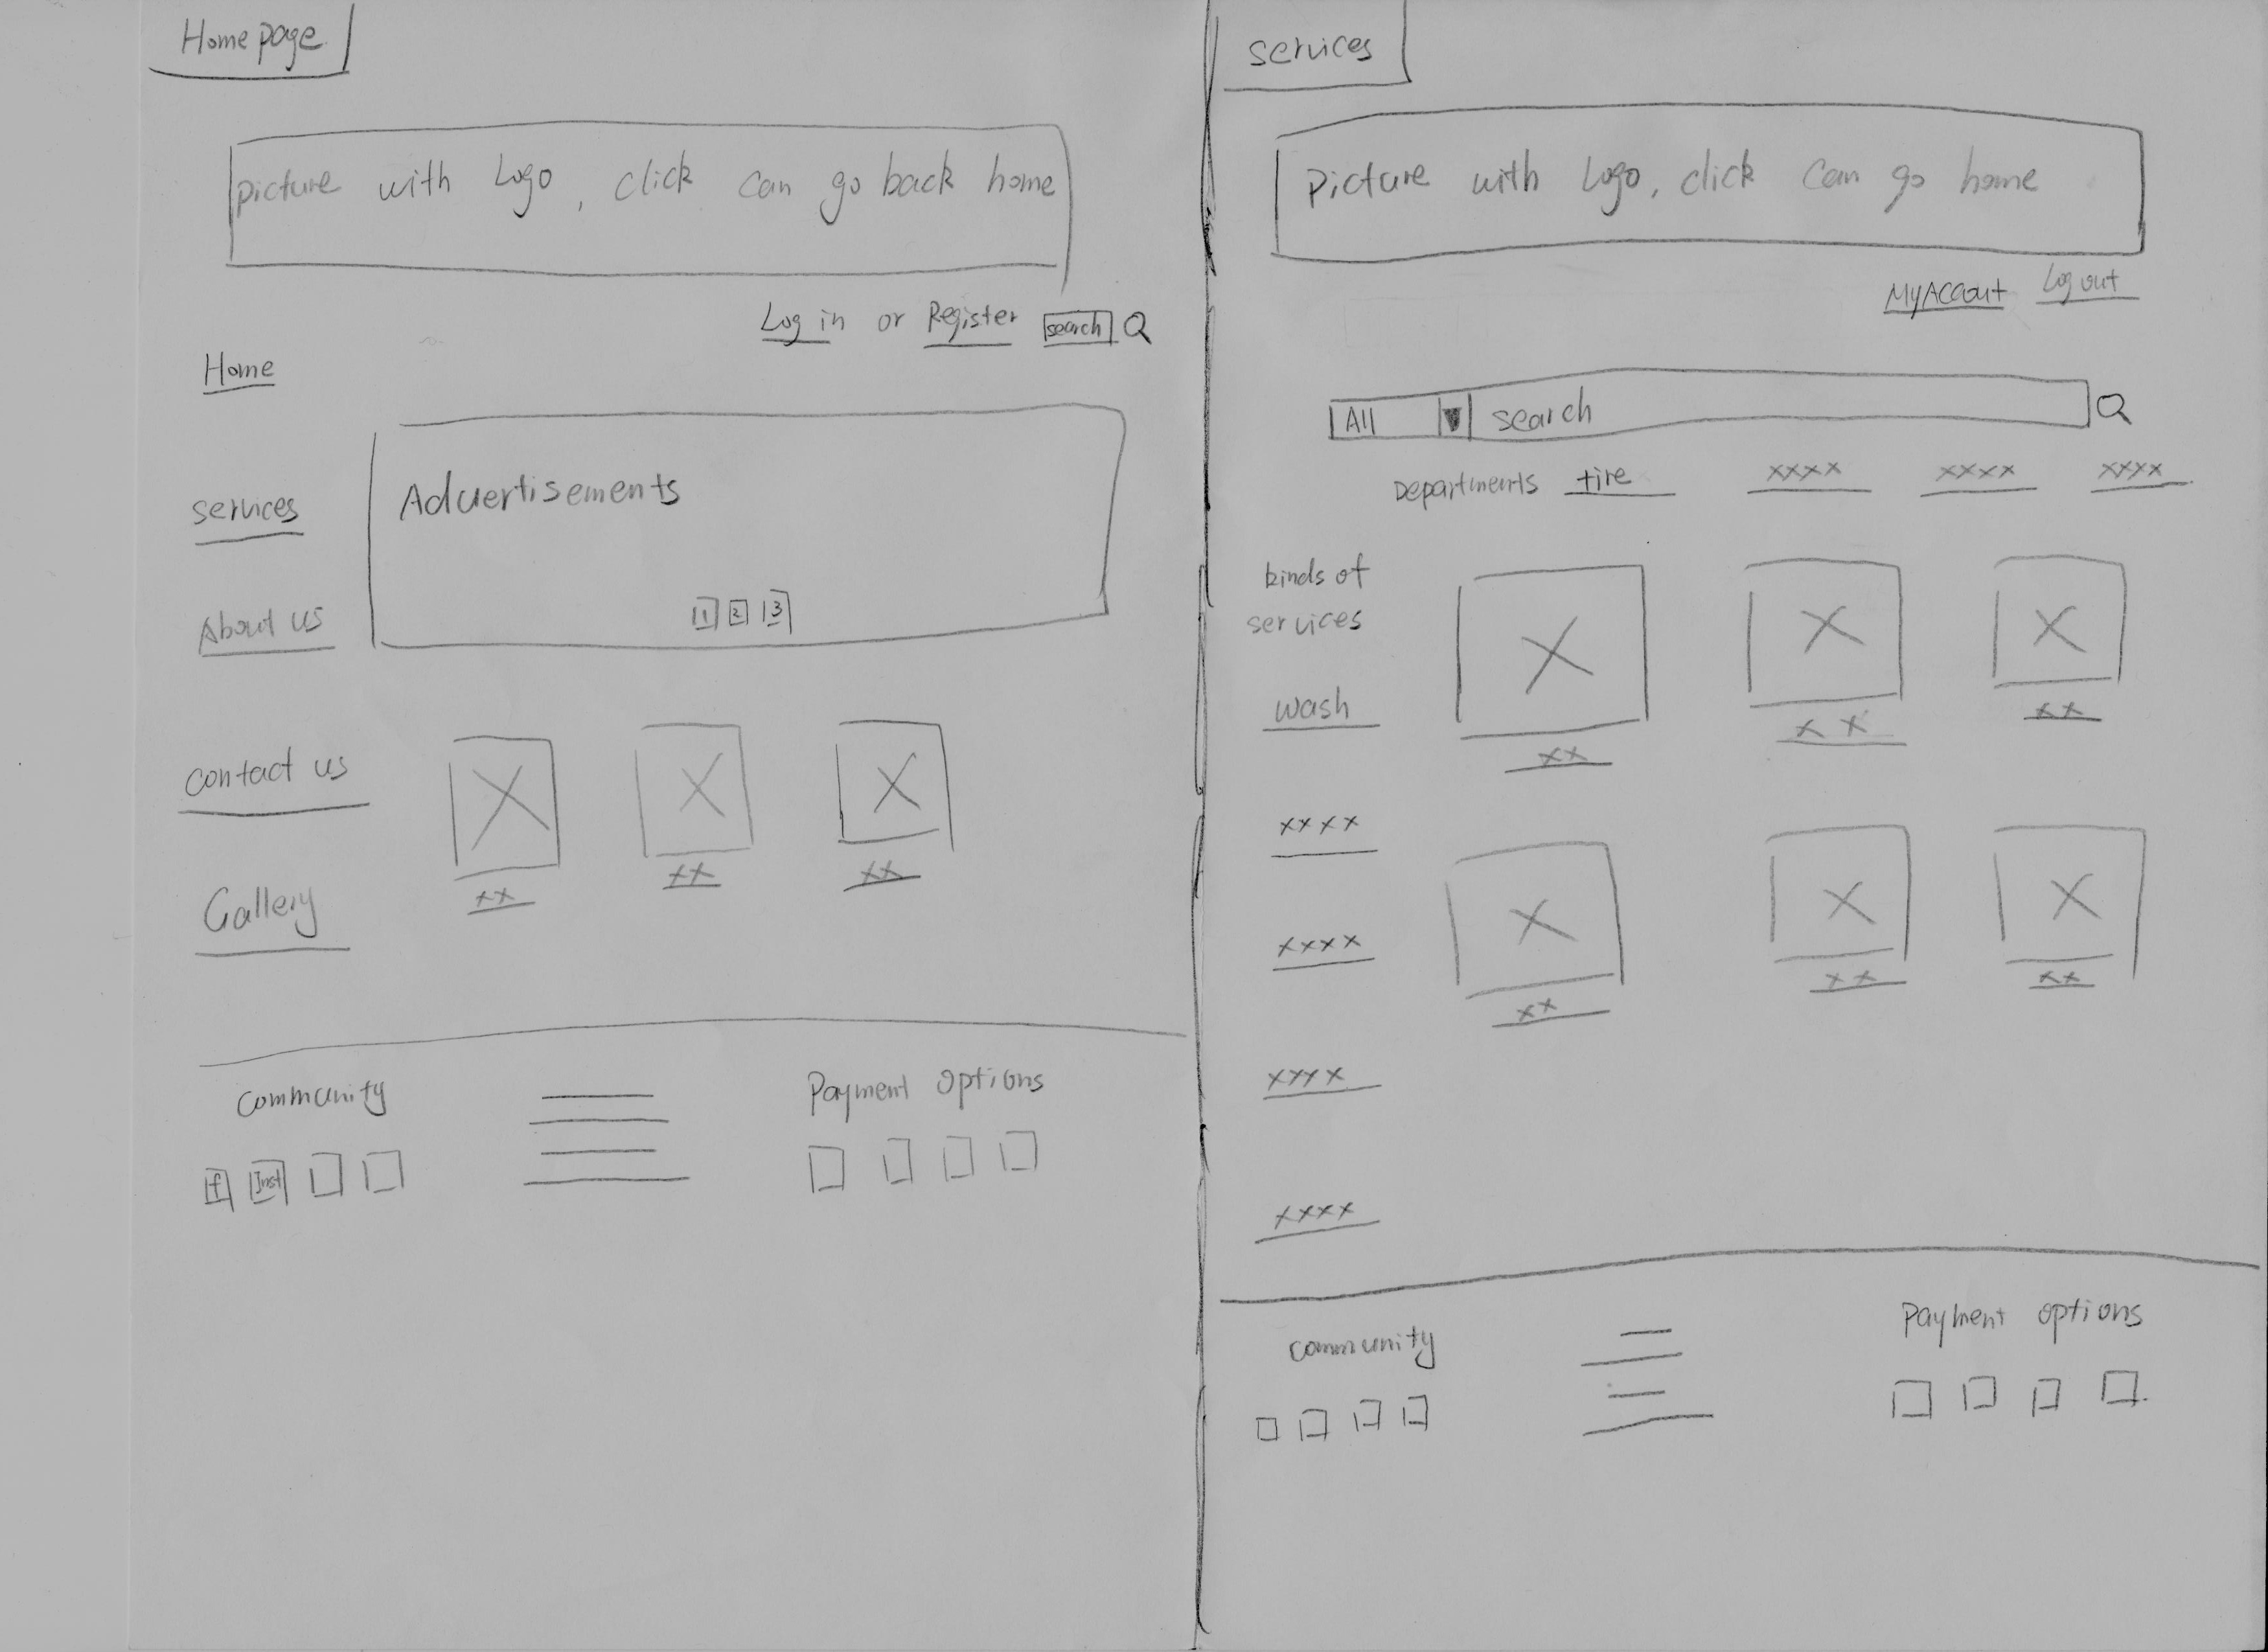 Homepage
picture with Logo, click can go back home
Log in or Register search
Home
services
Advertisements
1 2 3
About us
contact us
xx xx xx
Gallery
community
Payment options
f Inst
services
picture with Logo, click can go home
MyAccout Log out
All search
Departments tire xxxx xxxx xxxx
kinds of
services
wash
xx xx xx
xxxx
xxxx
xx xx xx
xxxx
xxxx
community
Payment options